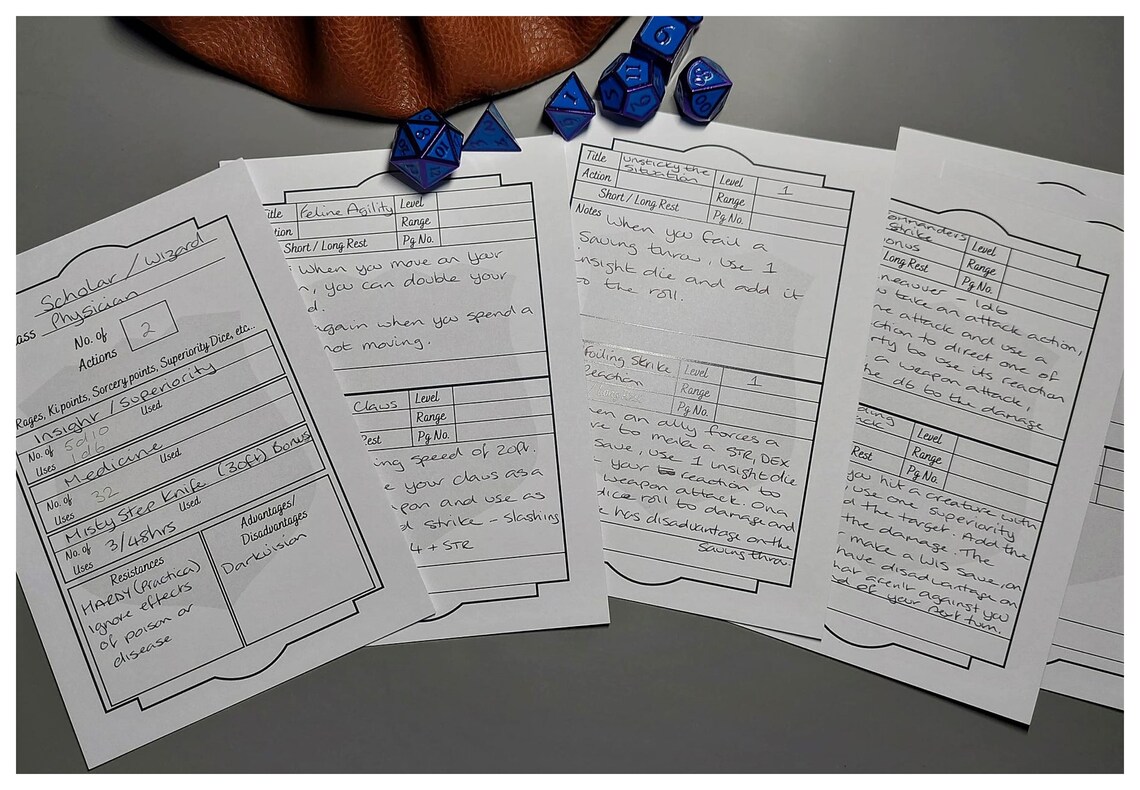 Scholar / Wizard
ass Physician
No. of
Actions
2
Rages, Ki points, Sorcery points, Superiority Dice, etc...
Insight / Superiority
No. of
Uses
5d10
1d6
Used
Medicine
No. of
Uses
32
Used
Misty Step Knife (30ft) Bonus
No. of
Uses
3/48hrs
Used
Resistances
HARDY (Practical)
Ignore effects
of poison or
disease
Advantages/
Disadvantages
Darkvision
itle Feline Agility Level
tion Range
Short / Long Rest Pg No.
When you move on your
n, you can double your
d.
again when you spend a
not moving.
Claws Level
Range
Rest Pg No.
ng speed of 20ft.
e your claws as a
pon and use as
d strike - slashing
4 + STR
Title Unsticky the Situation Level 1
Action Range
Short / Long Rest Pg No.
Notes When you fail a
Saving throw, use 1
nsight die and add it
o the roll.
Foiling Strike Level 1
Reaction Range
Pg No.
en an ally forces a
re to make a STR, DEX
save, use 1 insight die
your reaction to
weapon attack. On a
dice roll to damage and
e has disadvantage on the
saving throw.
ommanders
Strike Level
onus Range
Long Rest Pg No.
neauver - 1d6
w take an attack action,
e attack and use a
ction to direct one of
rty to use its reaction
a weapon attack,
he d6 to the damage
ding
ack. Level
Range
Rest Pg No.
you hit a creature with
use one superiority
d the target. Add the
the damage. The
make a WIS save, on
have disadvantage on
hat aren't against you
d of your next turn.
6
11
5
9
00
1
8
10